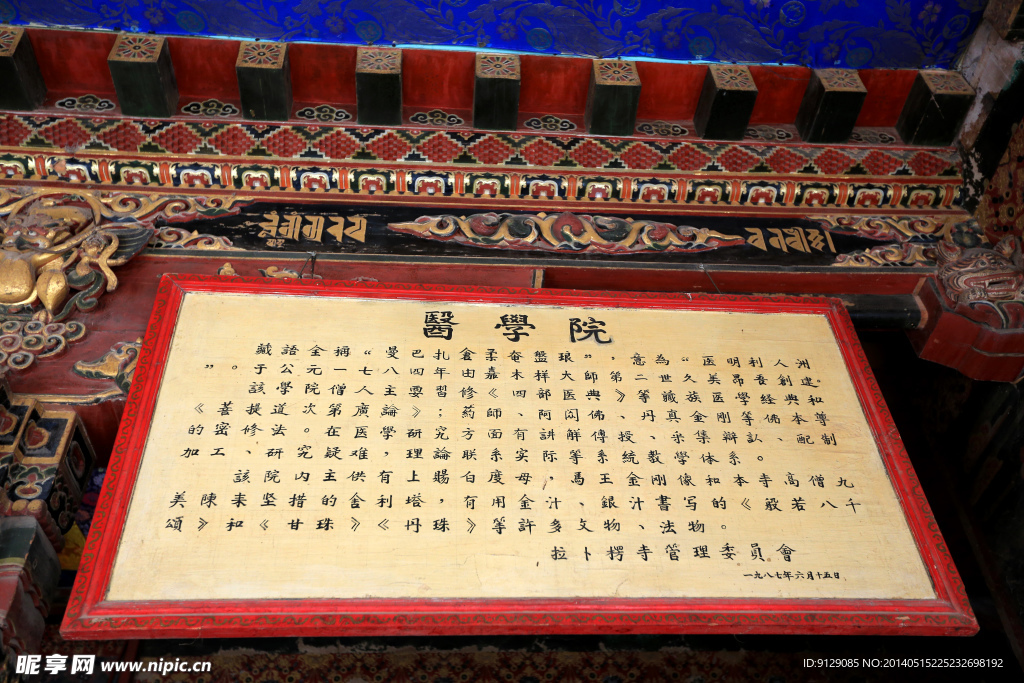 醫學院
藏語全稱“曼巴扎倉柔奄盤琅”，意為“医明利人洲
”。于公元一七八四年由嘉木样大師第二世久美昂吾創建。
該學院僧人主要習修《四部医典》等藏族医學经典和
《菩提道次第廣論》；葯師、阿閦佛、丹真金剛等佛本尊
的密修法。在医學研究方面有讲解傳授、采集辯認、配制
加工、研究疑难，理論联系实际等系統教學体系。
該院内主供有上賜白度母，馬王金剛像和本寺高僧九
美陳来坚措的舍利塔，有用金汁、銀汁書写的《般若八千
頌》和《甘珠》《丹珠》等許多文物、法物。
拉卜楞寺管理委員會
一九八七年六月十五日
昵享网 www.nipic.cn
ID:9129085 NO:20140515225232698192